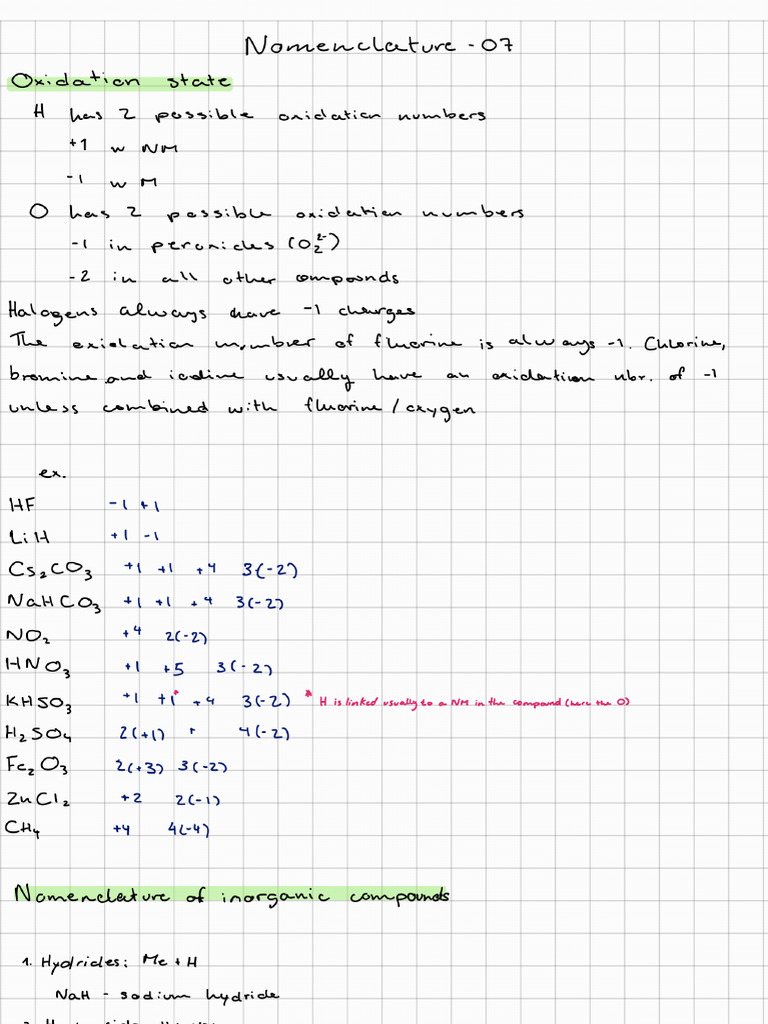 Nomenclature - 07
Oxidation state
H has 2 possible oxidation numbers
+1 w NM
-1 w M
O has 2 possible oxidation numbers
-1 in peroxides (O₂²⁻)
-2 in all other compounds
Halogens always have -1 charges
The oxidation number of fluorine is always -1. Chlorine,
bromine and iodine usually have an oxidation nbr. of -1
unless combined with fluorine / oxygen
ex.
HF -1 +1
LiH +1 -1
Cs₂CO₃ +1 +1 +4 3(-2)
NaHCO₃ +1 +1 +4 3(-2)
NO₂ +4 2(-2)
HNO₃ +1 +5 3(-2)
KHSO₃ +1 +1* +4 3(-2) * H is linked usually to a NM in the compound (here the O)
H₂SO₄ 2(+1) 4(-2)
Fe₂O₃ 2(+3) 3(-2)
ZnCl₂ +2 2(-1)
CH₄ +4 4(-4)
Nomenclature of inorganic compounds
1. Hydrides: Me + H
NaH - sodium hydride